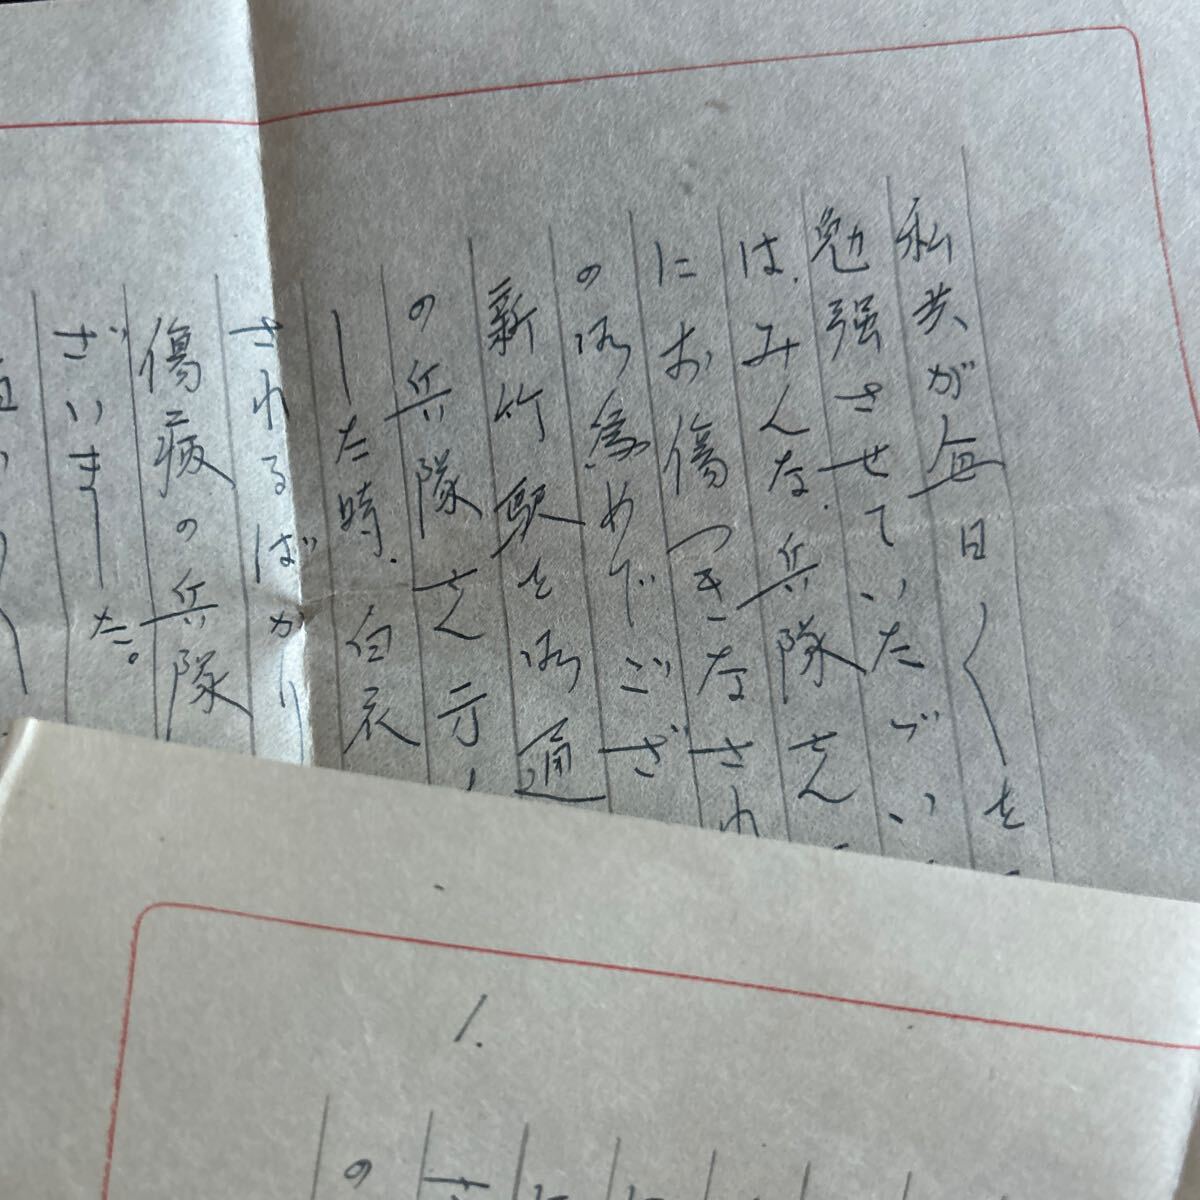 私共が毎日〱を
勉强させていたゞい
は、みんな、兵隊さん
にお傷つきなされ
の御為めでござ
新竹駅を御通
の兵隊さん方
した時、白衣
されるばかり
傷病の兵隊
ざいました。
1.
の